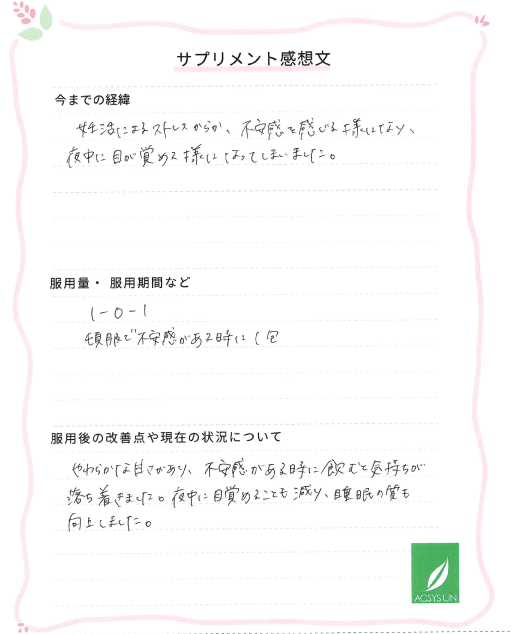 サプリメント感想文
今までの経緯
妊活によるストレスからか、不安感を感じる様になり、
夜中に目が覚める様になってしまいました。
服用量・ 服用期間など
1-0-1
頓服で不安感がある時に1包
服用後の改善点や現在の状況について
やわらかな甘さがあり、不安感がある時に飲むと気持ちが
落ち着きました。夜中に目覚めることも減り、睡眠の質も
向上しました。
ACSYSUN